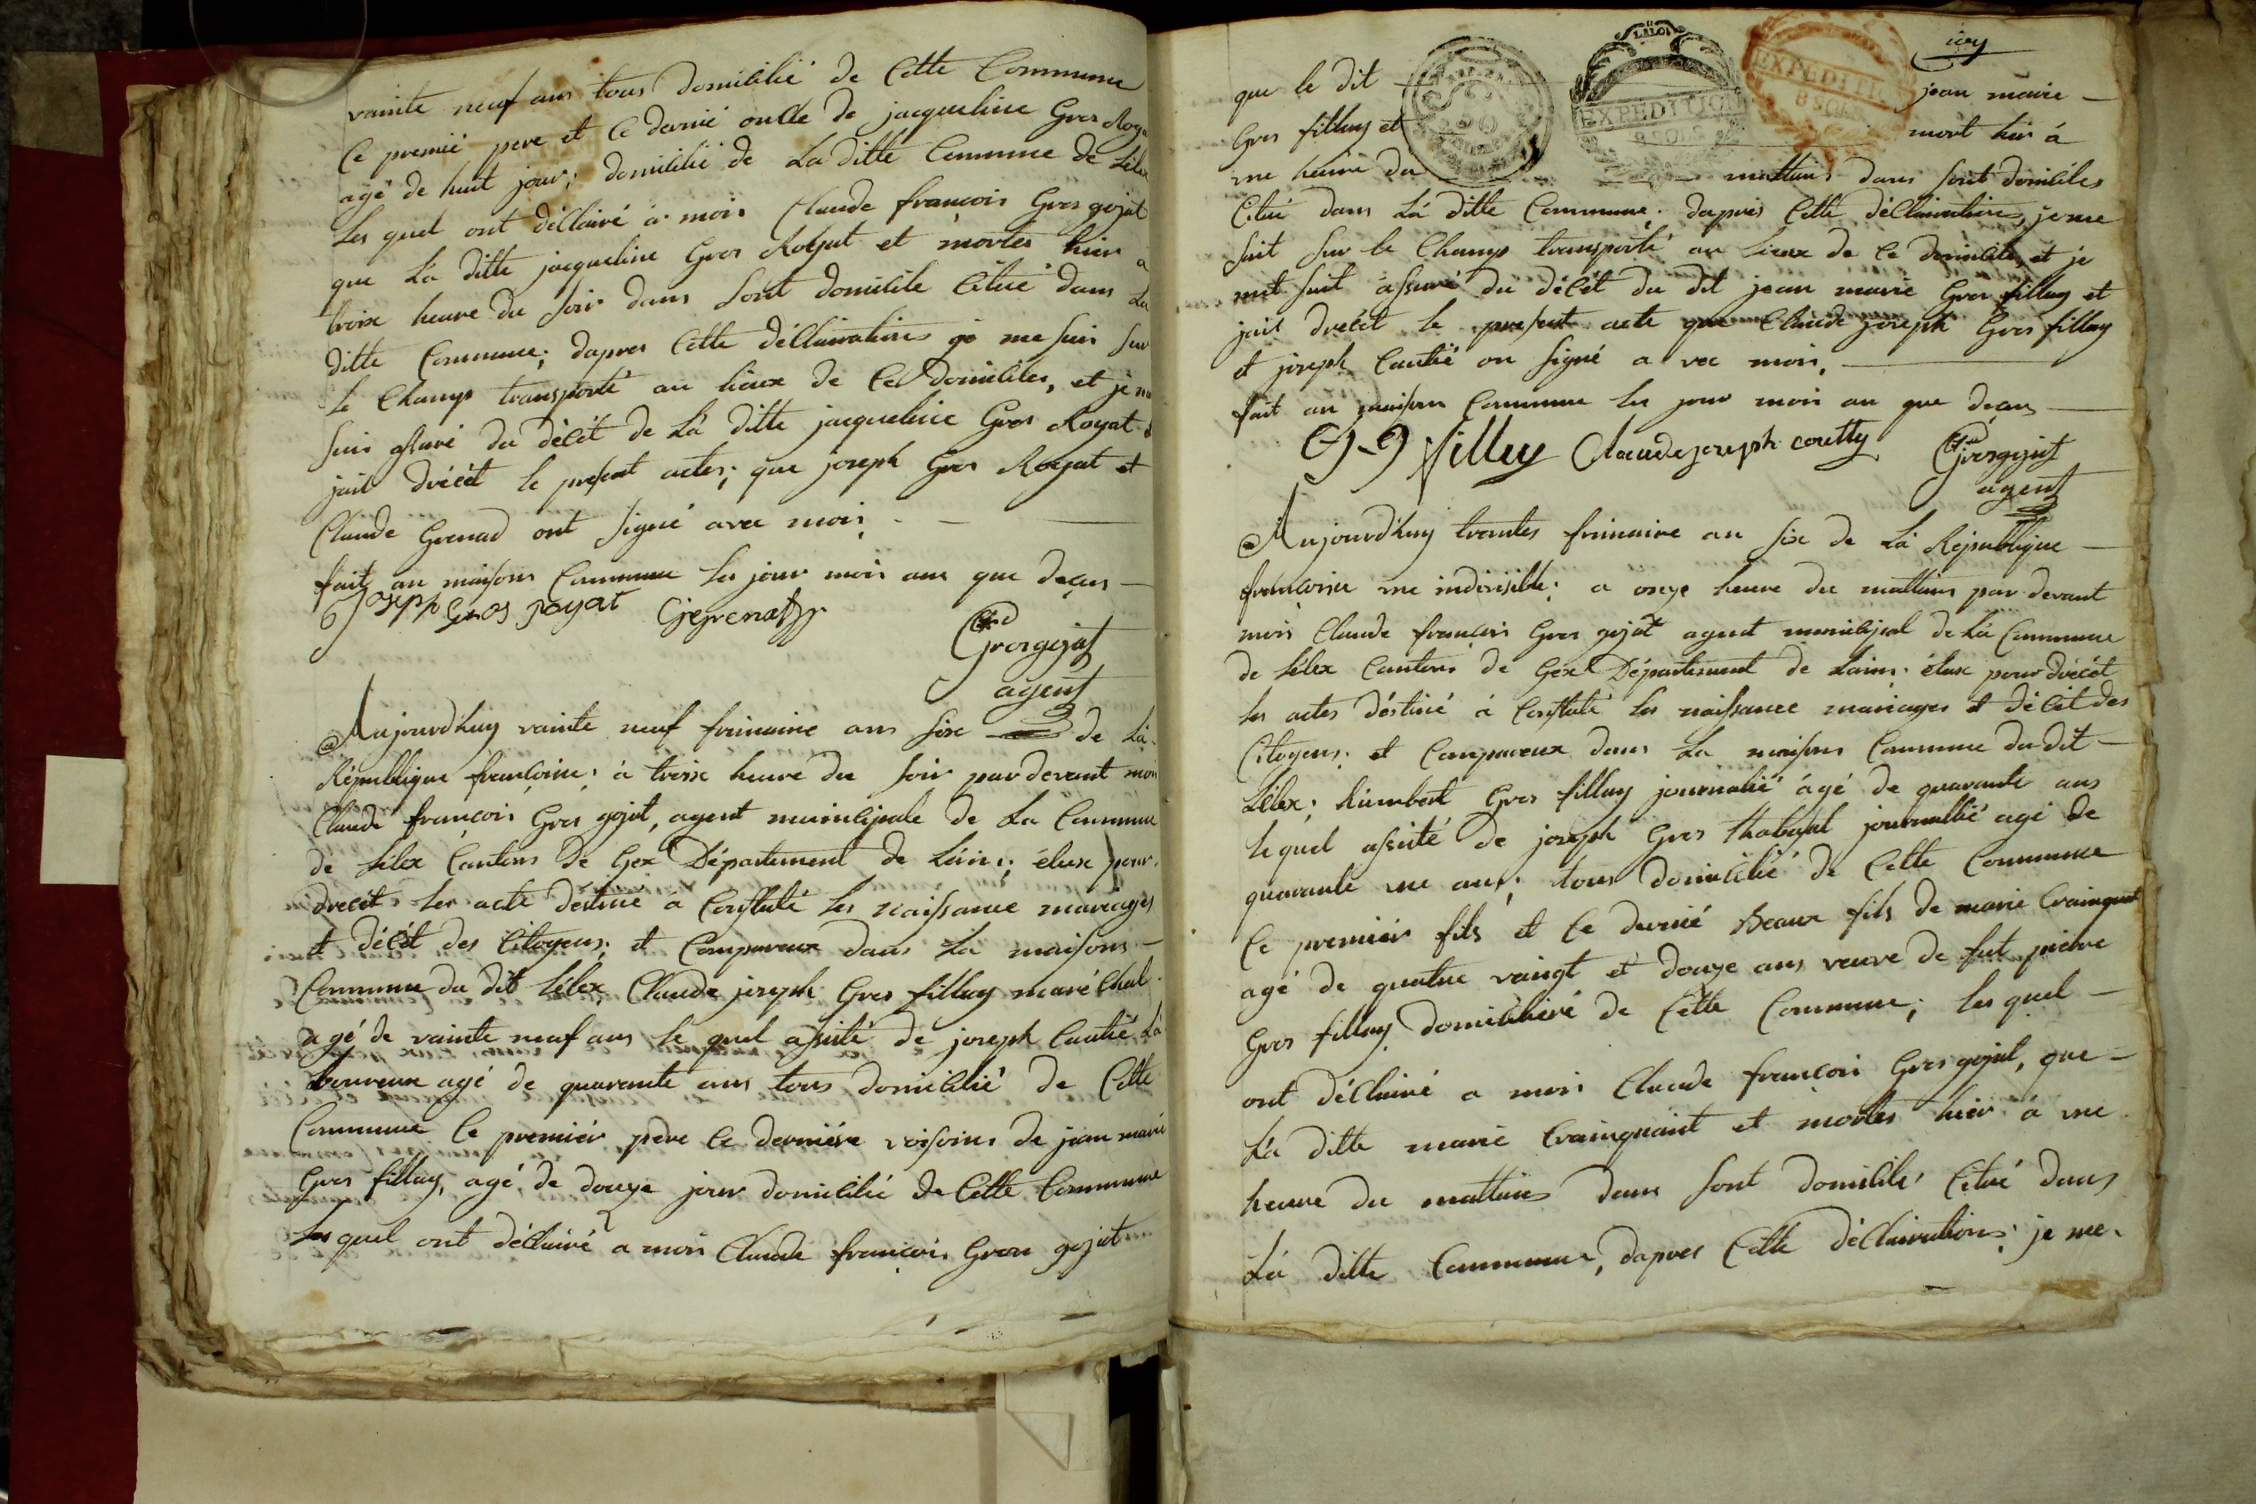 vainte neuf ans tous domicilié de Cette Commune
Ce premié pere et Ce dernié oncle de jacqueline Gros Roya
agé de huit jour; domicilié de La ditte Commune de Lélex
Les quel ont déClairé à mois Claude françois Gros gojat
que Là ditte jacqueline Gros Royat et mortes hier à
troix heure du soir dans sont domicile Citué dans La
ditte Commune; dapres Cette déClairations je me suis sur
le Champ transporté au lieux de Ce domiciles, et je me
suis assuré du décét de Là ditte jacqueline Gros Royat &
jait drécét le present actes; que joseph Gros Royat et
Claude Grenad ont signé avec mois
fait au maisons Commune les jour mois ans que deçus
joseph gros royat Cjgrenad
Gros gojat
agent
Aujourdhuy vainte neuf frimaire ans six de Là
République françoise; à troix heure du soir par devant mois
Claude françois Gros gojat, agent municipale de La Commune
de Lélex Cantons de Gex Département de Lain; élux pour
drecét les acte déstiné à Constaté les naissance mariages
et décét des Citoyens; et Comparaux dans La maisons
Commune du dit Lélex Claude joseph Gros fillay maréChal
agé de vainte neuf ans le quel assité de joseph Cautié La
boureux agé de quarante ans tous domicilié de Cette
Commune Ce premiér père Ce derniére voisoins de jean marie
Gros fillay, agé de douze jour domicilié de Cette Commune
Les quel ont déClairé a mois Claude françois Gros gojat
que le dit jean marie
Gros fillay et mort hier à
une heure du mattins dans sont domiciles
Citué dans Là ditte Commune. dapres Cette déClairations, je me
suit sur le Champ transporté au lieux de Ce domicile, et je
met suit assuré du décét du dit jean marie Gros fillay et
jait drécét le present acte que Claude joseph Gros fillay
et joseph Cautié on signé a vec mois,
fait au maison Commune les jour mois an que deçus
CJ GJ fillay Claude joseph coutty Gros gojat
agent
Aujourdhuy trantes frimaire an six de Là République
françoise une indivisible; a onze heure du mattins par devant
mois Claude françois Gros gojat agent municipal de Là Commune
de Lélex Cantons de Gex Département de Lain; élux pour drécét
les actes déstiné à Constaté les naissance mariages et décét des
Citoyens; et Comparaux dans La maisons Commune du dit
Lélex; humbert Gros fillay journalié àgé de quarante ans
le quel assité de joseph Gros thabusat journallié agé de
quarante une ans; tous domicilié de Cette Commune
Ce premiér fils et Ce dernié Beaux fils de marie Crainquant
agé de quatre vaingt et douze ans veuve de fut pierre
Gros fillay domicilié de Cette Commune; les quel
ont déClairé a mois Claude françois Gros gojat, que
Là ditte marie Crainquant et mortes hier à une
heure du mattins dans sont domicilé Citué dans
Là ditte Commune, dapres Cette déClairations; je me
LA LOI
EXPEDITION
8 SOLS
EXPEDITION
8 SOLS